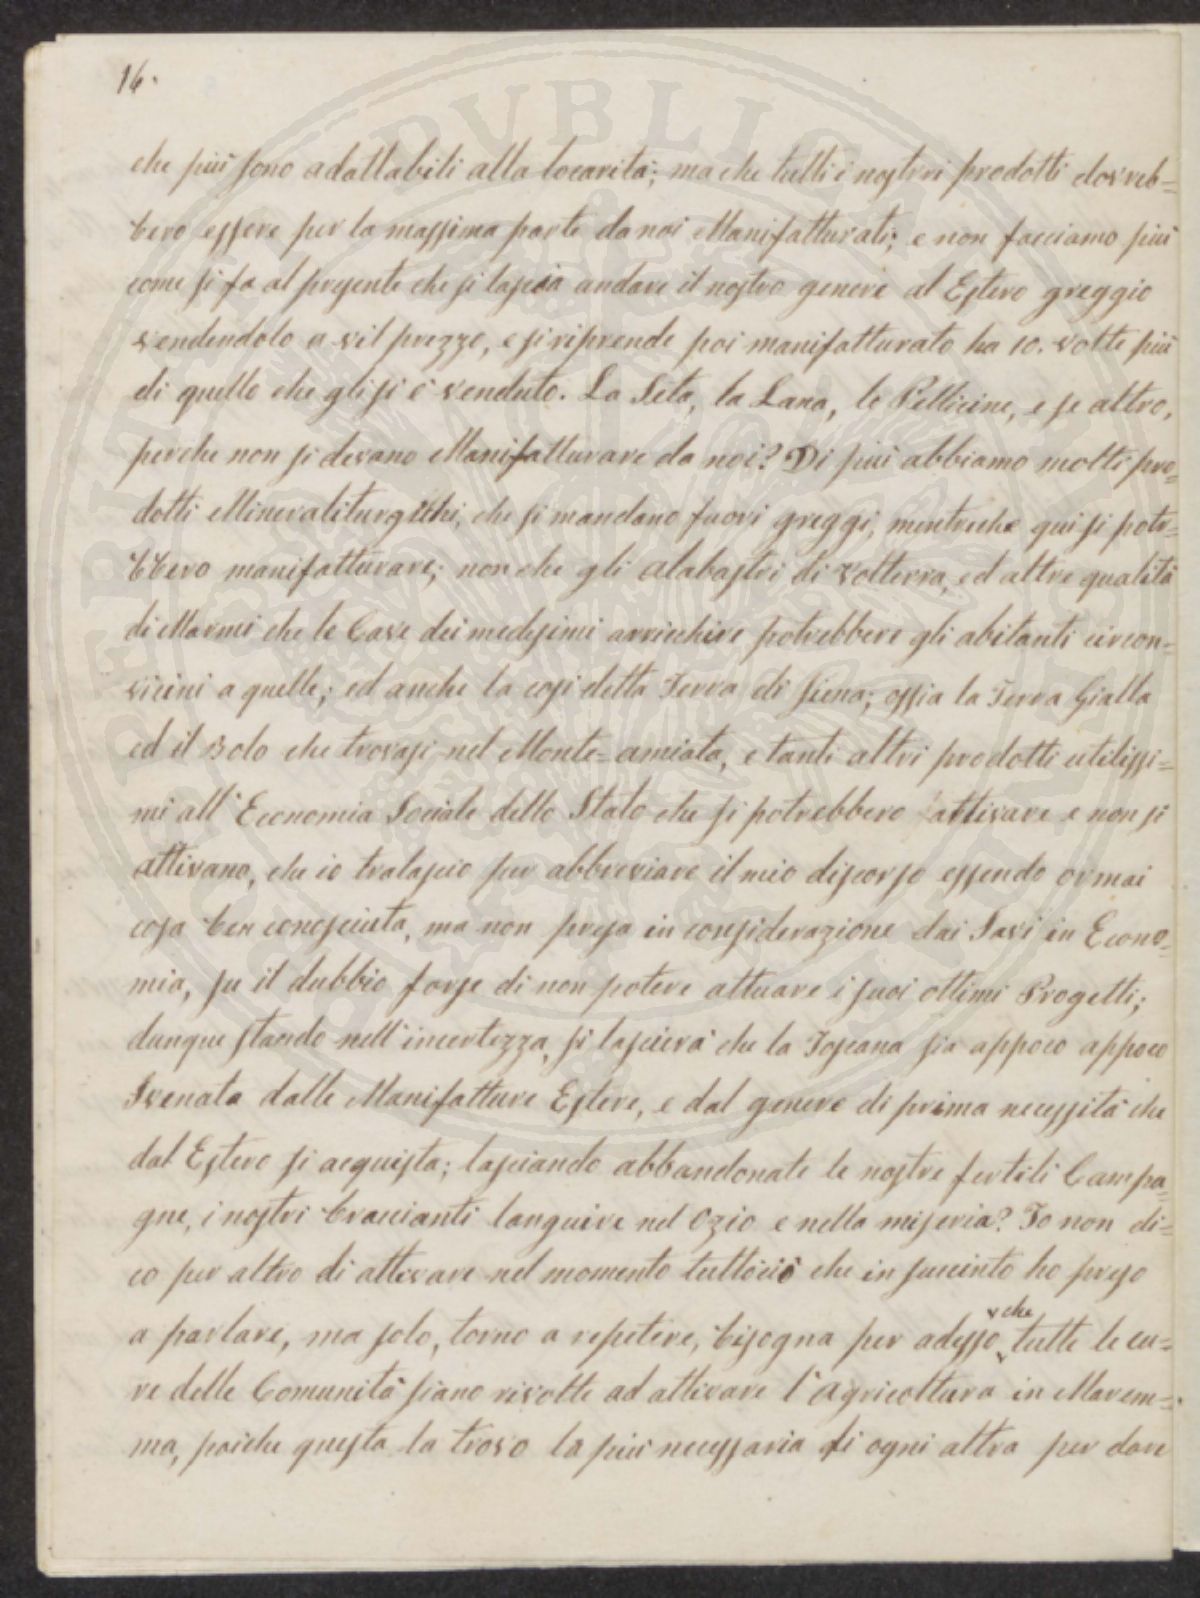 16.
che piú sono adattabili alla locarità; ma che tutti i nostri prodotti dovreb=
bero essere per la massima parte da noi Manifatturati; e non facciamo piú
come si fa al presente che si lascia andare il nostro genere al Estero greggio
vendendolo a vil prezzo, e si riprende poi manifatturato ha 10. volte piú
di quello che gli si è venduto. La Seta, la Lana, le Pelliccine, e se altro,
perche non si devano Manifatturare da noi? Di piú abbiamo molti pro=
dotti Mineraliturgithi, che si mandano fuori greggi, mentreche qui si potr=
bbero manifatturare; non che gli alabastri di Volterra, ed altre qualità
di Marmi che le Cave dei medesimi arricchire potrebbere gli abitanti circon=
vicini a quelle; ed anche la così detta Terra di Siena; ossia la Terra Gialla
ed il Bolo che trovasi nel Monte=amiata, e tanti altri prodotti utilissi=
mi all'Economia Sociale dello Stato che si potrebbero attivare e non si
attivano, che io tralascio per abbreviare il mio discorso essendo ormai
cosa ben conosciuta, ma non presa in considerazione dai Savi in Econo=
mia, su il dubbio forse di non potere attuare i suoi ottimi Progetti;
dunque stando nell'incertezza, si lascierà che la Toscana sia appoco appoco
Svenata dalle Manifatture Estere, e dal genere di prima necessità che
dal Estero si acquista; lasciando abbandonate le nostre fertili Campa=
gne, i nostri braccianti languire nel Ozio e nella miseria? Io non di=
co per altro di attivare nel momento tuttociò che in succinto ho preso
a parlare, ma solo, torno a repetere, bisogna per adesso che tutte le cu=
re delle Comunità siano rivolte ad attivare l'Agricoltura in Marem=
ma, poiche questa la trovo la piú necessaria di ogni altra per dare
PUBLIC